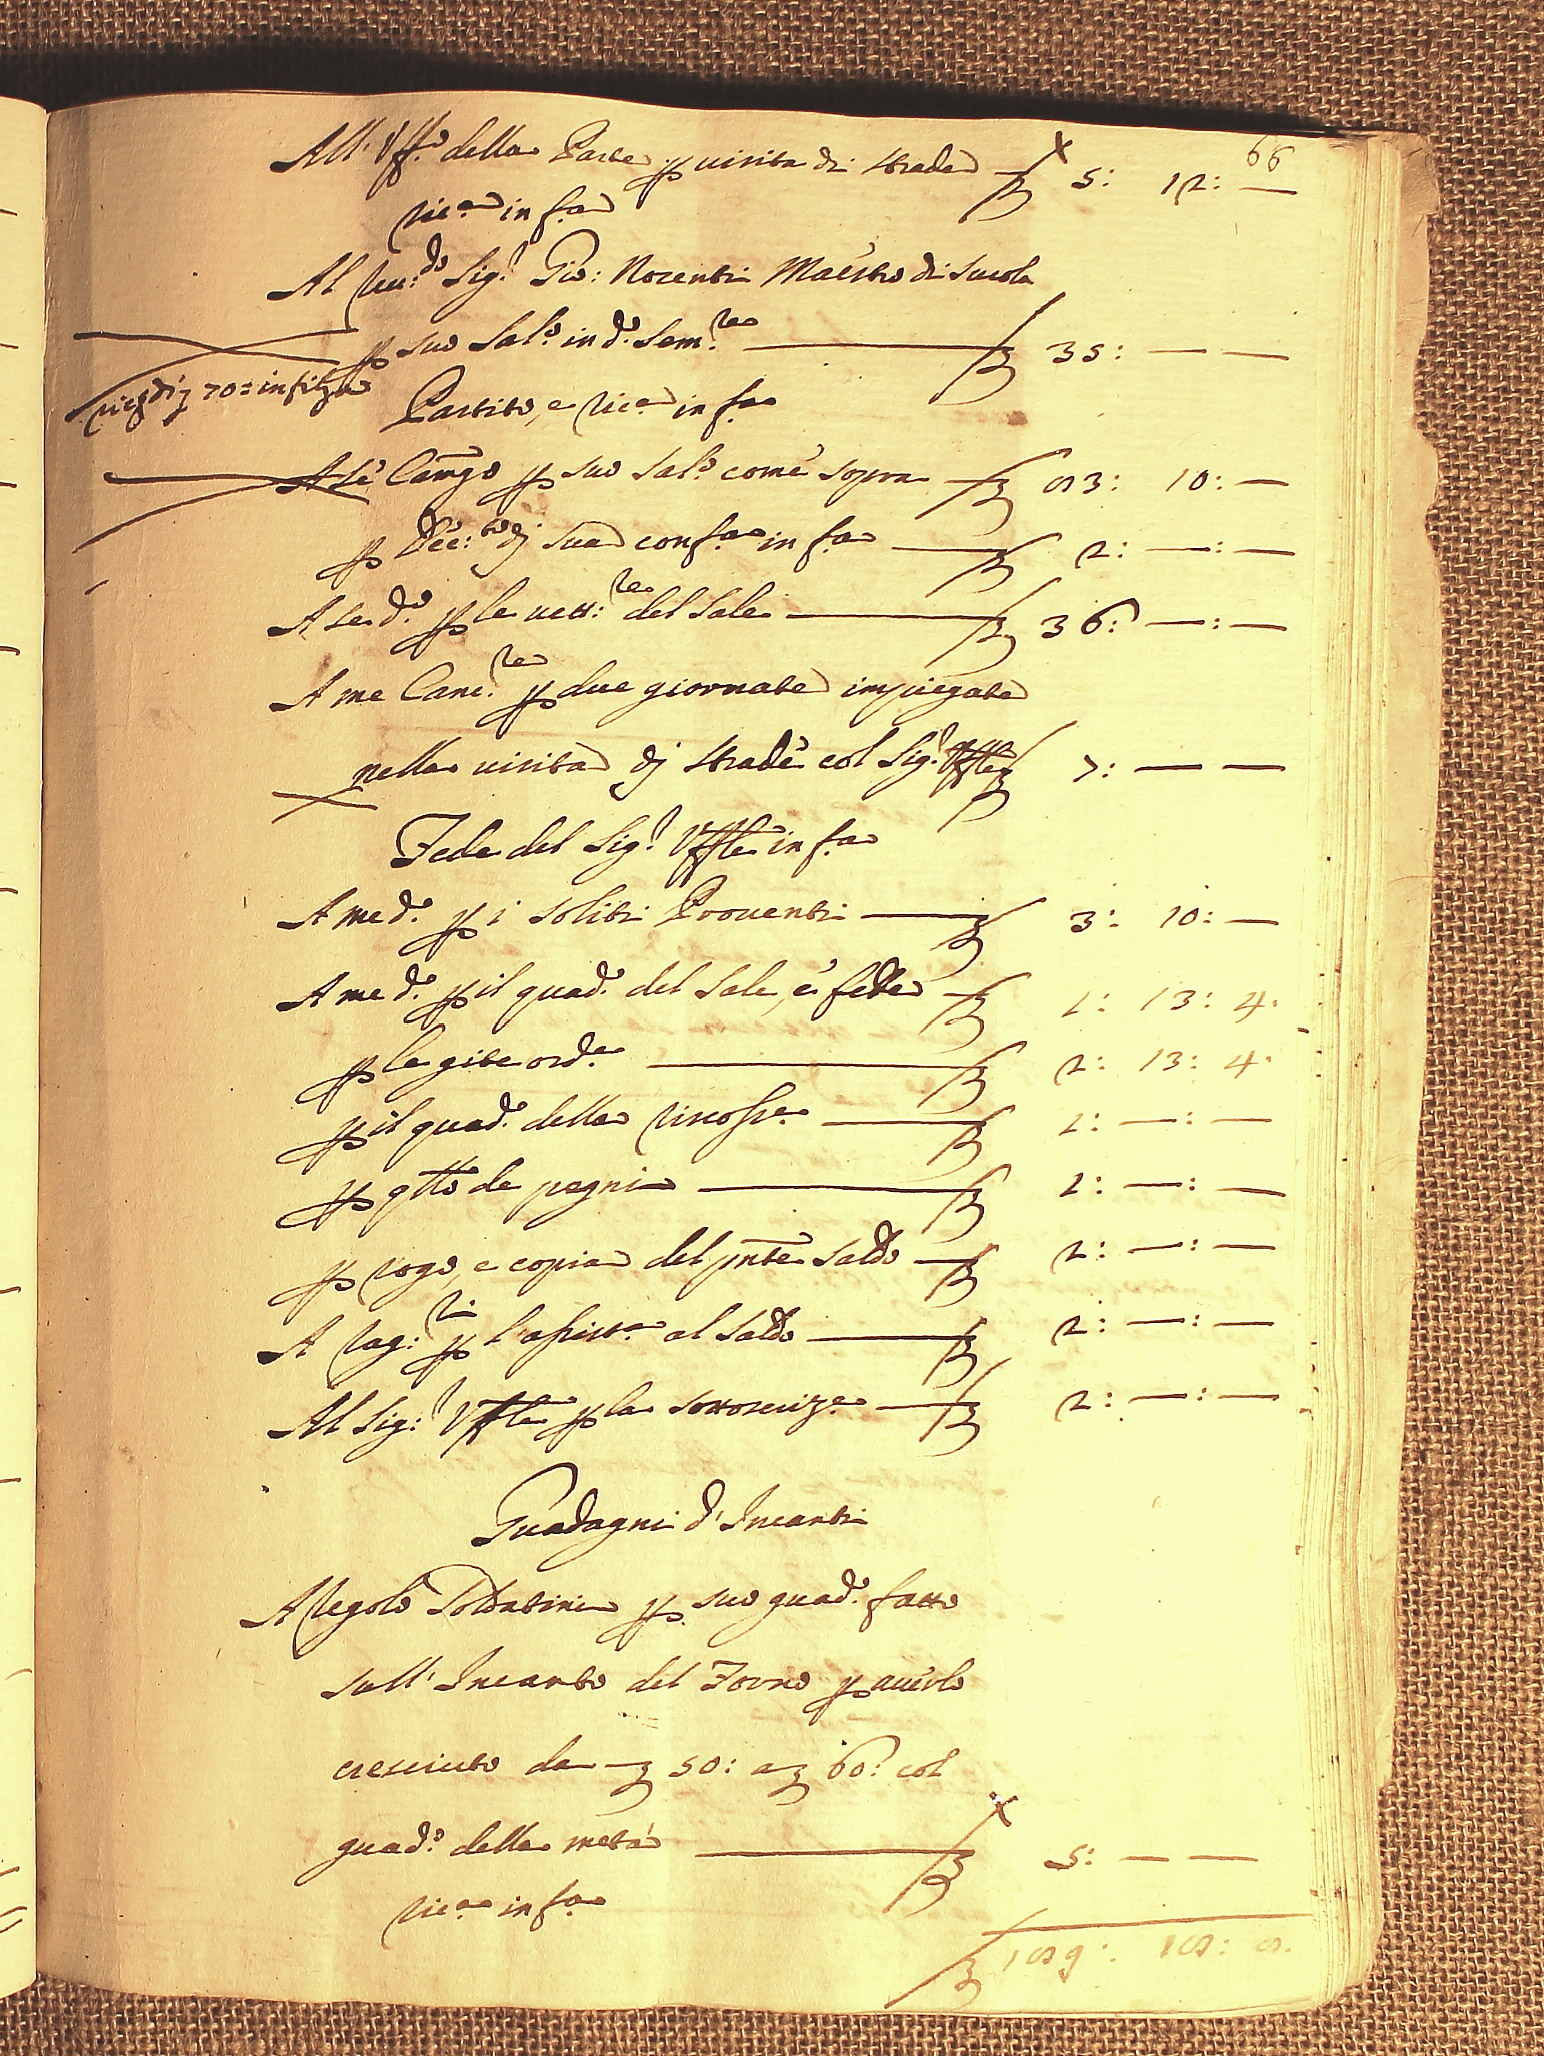 66
All' Uff.o della Parte p visita di strade £ 5: 12: —
ric.a in f.a
Al Reu:do Sig.r Gio: Nocenti Maestro di Scuola
p suo Sal.o in d.o Sem.re £ 35: — —
ric di £ 70: in filza
Partito, e ric.a in f.a
A Se' p suo Sal.o come sopra £ 83: 10: —
p in f.a £ 2: —: —
A Se d.o p le vett:re del Sale £ 36: —: —
A me Canc.re p due giornate impiegate
nella visita di strade col Sig.r Uffle £ 7: — —
Fede del Sig.r Uffle in f.a
A me d.o p i soliti Proventi £ 3: 10: —
A me d.o p il quad.o del Sale, e fede £ 1: 13: 4.
p le gite ord.e £ 2: 13: 4.
p il quad.o della riscoss.e £ 1: —: —
p qtto de pegni £ 1: —: —
p rogo, e copia del pnte Saldo £ 2: —: —
A Rag:ri p l'assist.a al Saldo £ 2: —: —
Al Sig:r Uffle p la sottoscriz.e £ 2: —: —
Guadagni d'Incanti
A Regolo Soldatini p suo guad.o fatto
sull'Incanto del Forno p averlo
cresciuto da £ 50: a £ 60: col
guad.o della metà £ 5: — —
ric.a in f.a
£ 189: 18: 8.